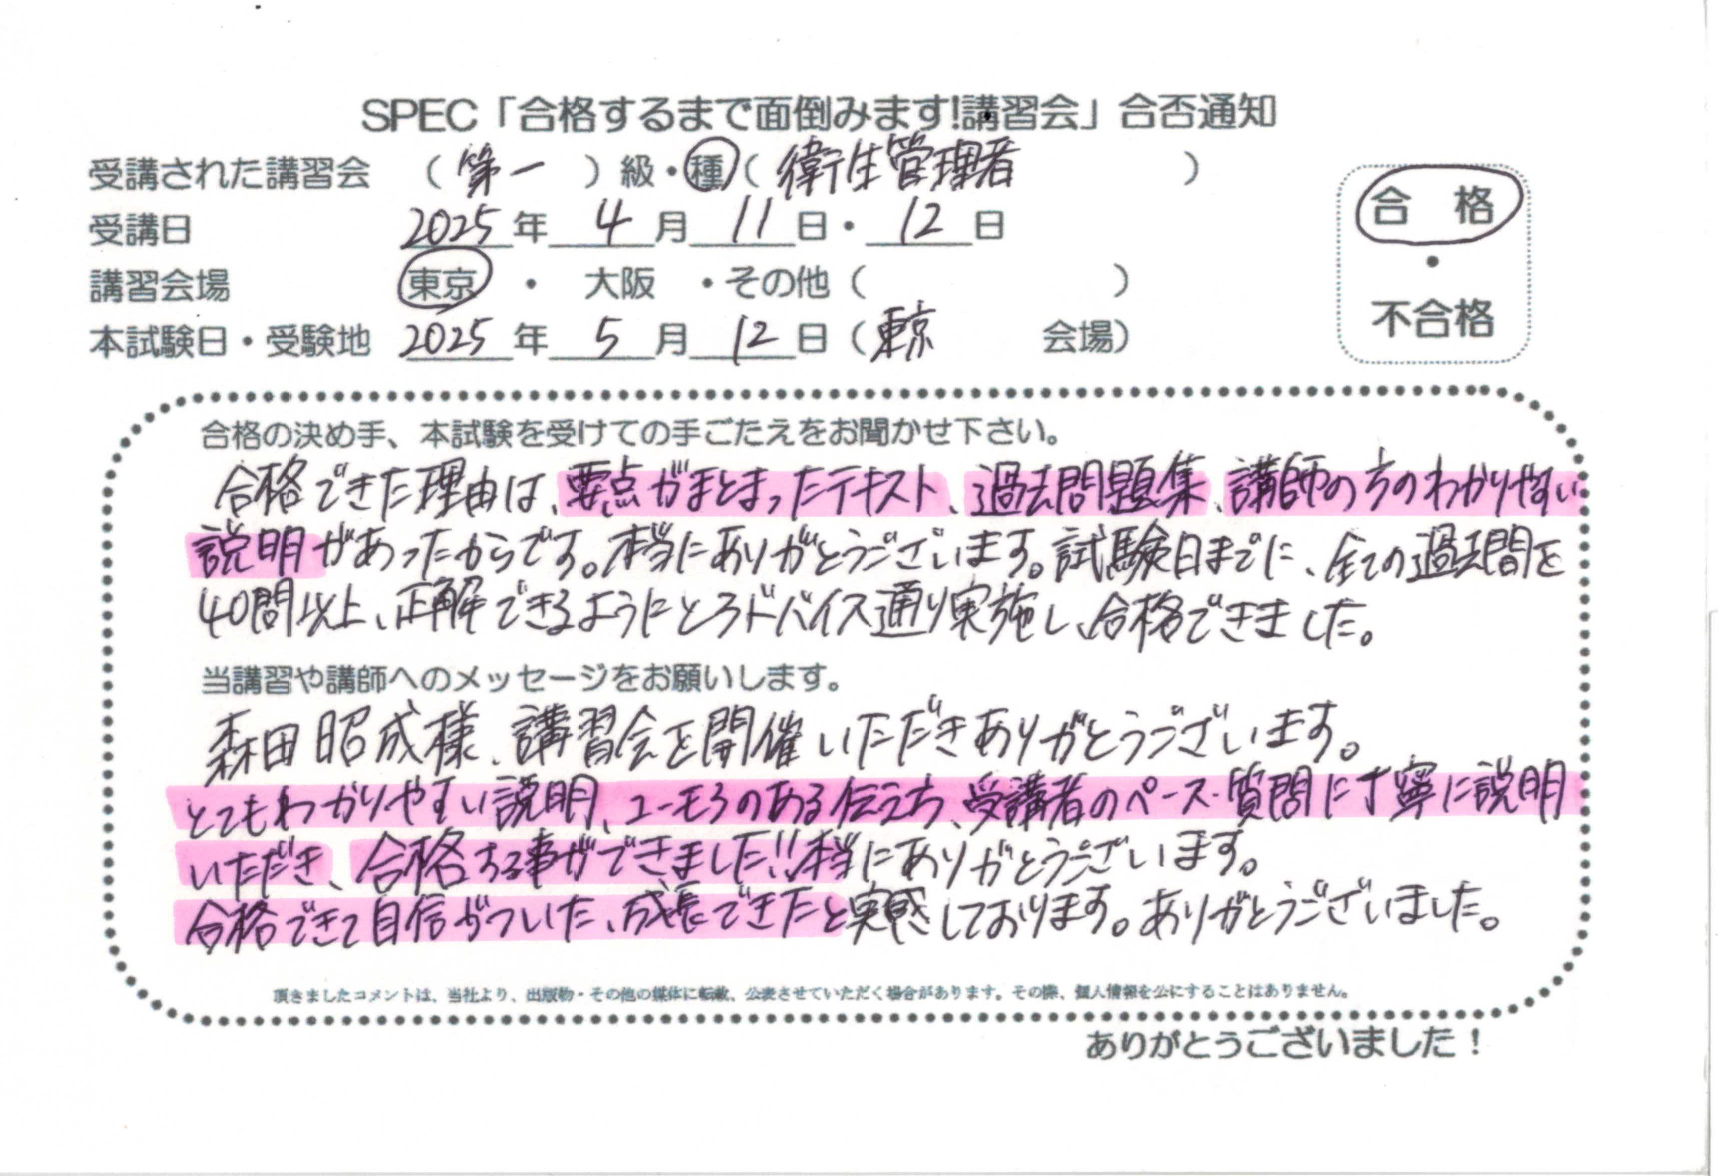 SPEC「合格するまで面倒みます!講習会」合否通知
受講された講習会 （ 第一 ）級・種（ 衛生管理者 ）
受講日 2025年 4月 11日・ 12日
講習会場 東京 ・ 大阪 ・その他（ ）
本試験日・受験地 2025年 5月 12日（東京 会場）
合 格
・
不合格
合格の決め手、本試験を受けての手ごたえをお聞かせ下さい。
合格できた理由は、要点がまとまったテキスト、過去問題集、講師の方のわかりやすい
説明があったからです。本当にありがとうございます。試験日までに、全ての過去問を
40問以上、正解できるようにと アドバイス通り実施し、合格できました。
当講習や講師へのメッセージをお願いします。
森田昭成様、講習会を開催いただきありがとうございます。
とてもわかりやすい説明、ユーモアのある伝え方、受講者のペース・質問に丁寧に説明
いただき、合格する事ができました!!本当にありがとうございます。
合格できて自信がついた、成長できたと実感しております。ありがとうございました。
頂きましたコメントは、当社より、出版物・その他の媒体に転載、公表させていただく場合があります。その際、個人情報を公にすることはありません。
ありがとうございました！